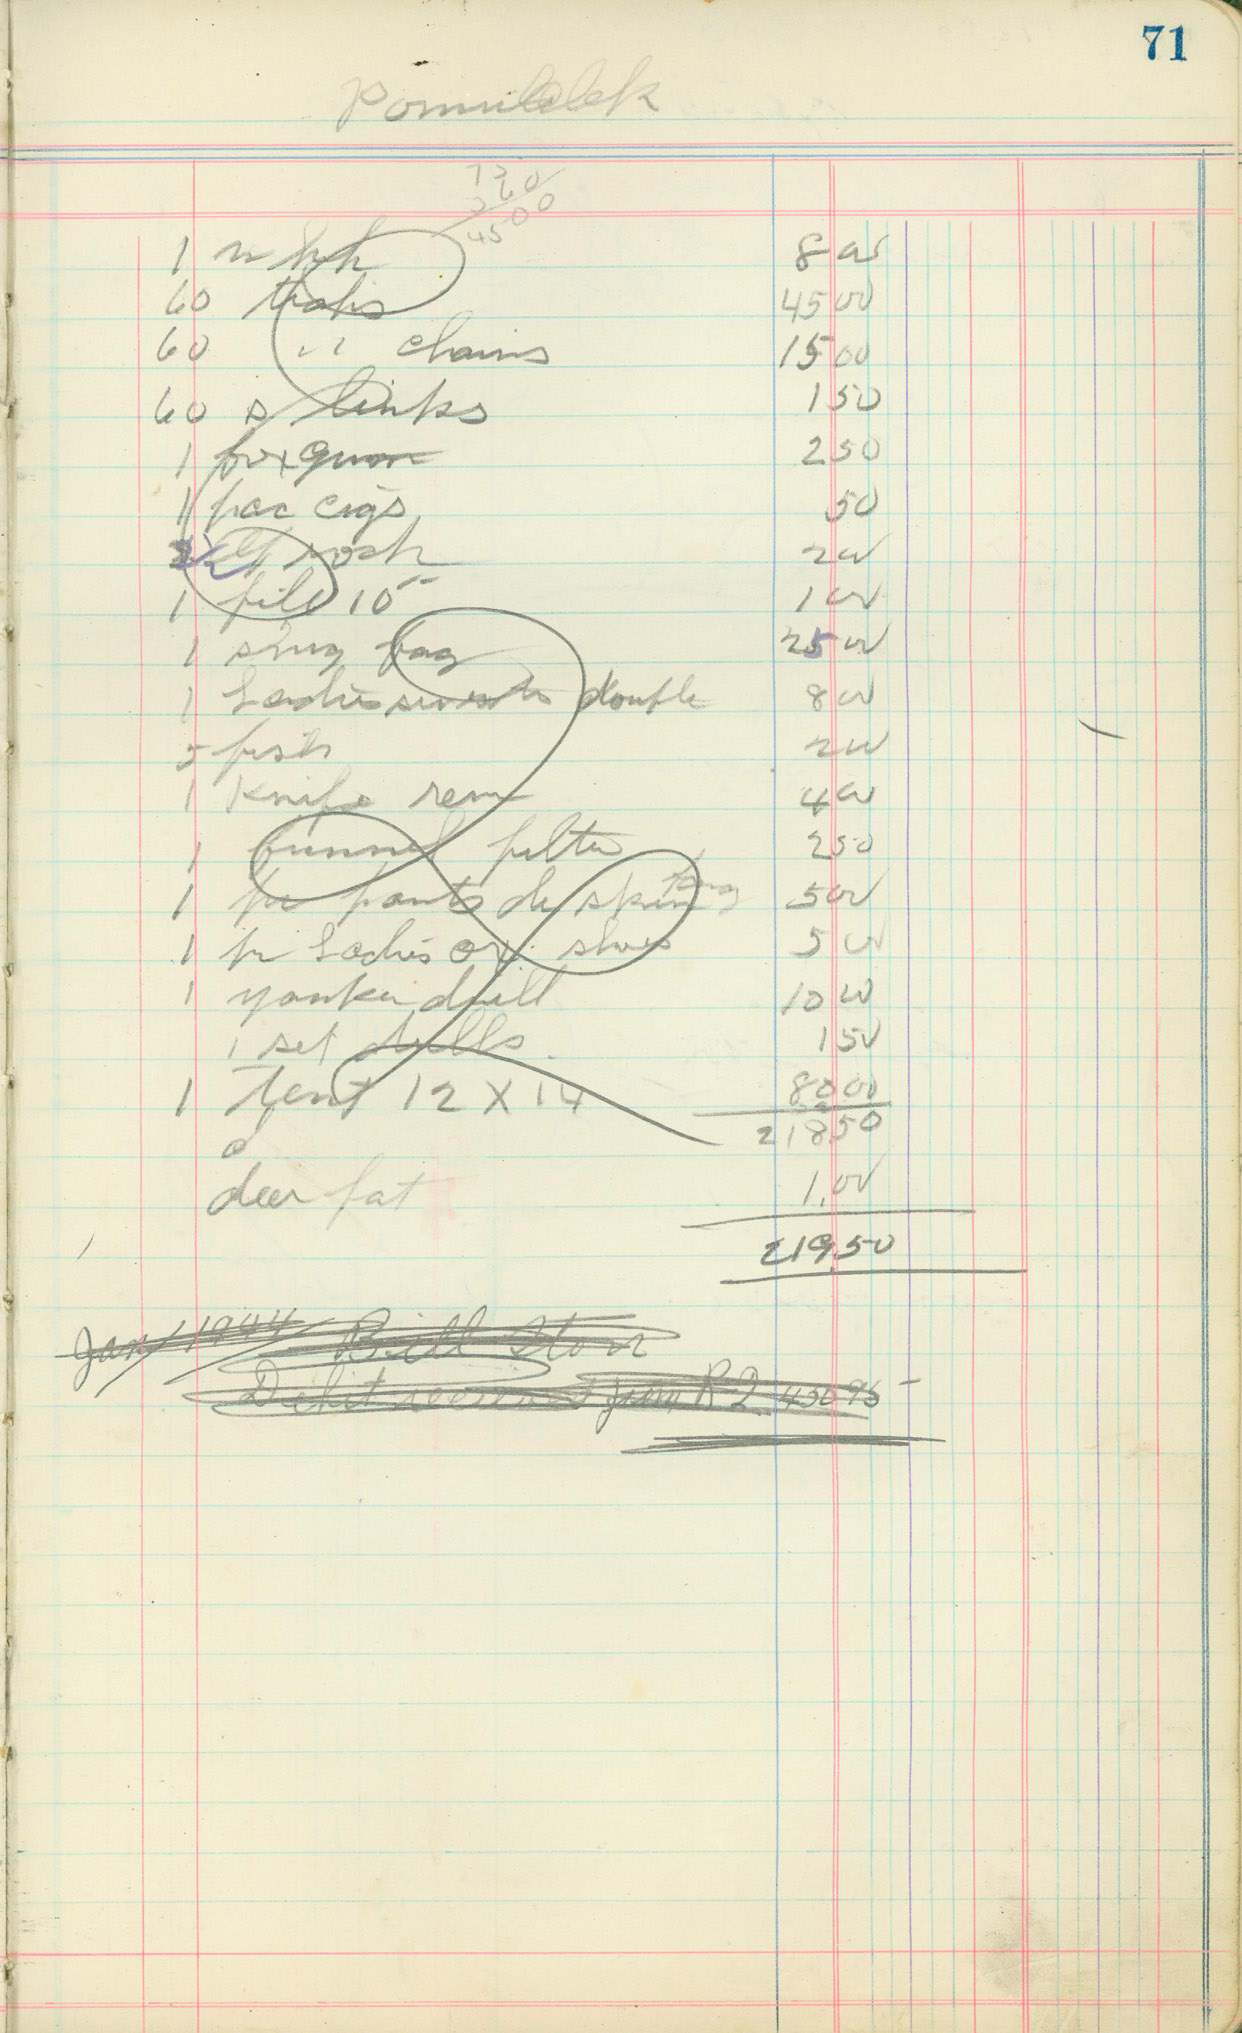 71
75
60
4500
1 8 00
60 traps 45 00
60 " chains 15 00
60 s links 1 50
1 250
1 pac cigs 50
2 00
1 file 10" 1 00
1 bag 25 00
1 Ladies double 8 00
2 00
1 Knife rem 4 00
1 funnel filter 2 50
1 pr pants skin 5 00
1 pr Ladies ox. shoes 5 00
1 yankee drill 10 00
1 set drills. 1 50
1 Tent 12 X 14 80 00
218 50
d
deer fat 1.00
219.50
Jan 1 1944 Bill Storr
Debit from R2 450 95